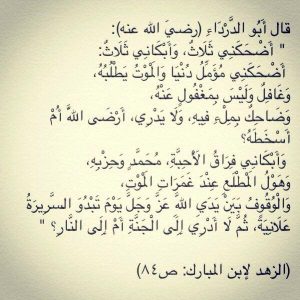 قال أَبُو الدَّرْدَاءِ (رضيَ الله عنه):
" أَضْحَكَنِي ثَلَاثٌ، وَأَبْكَانِي ثَلَاثٌ:
أَضْحَكَنِي مُؤَمِّلُ دُنْيَا وَالْمَوْتُ يَطْلُبُهُ،
وَغَافِلٌ وَلَيْسَ بِمَغْفُولٍ عَنْهُ،
وَضَاحِكٌ بِمِلْءِ فِيهِ، وَلَا يَدْرِي، أَرْضَى اللهَ أَمْ
أَسْخَطَهُ؟
وَأَبْكَانِي فِرَاقُ الْأَحِبَّةِ، مُحَمَّدٍ وَحِزْبِهِ،
وَهَوْلُ الْمُطَّلَعِ عِنْدَ غَمَرَاتِ الْمَوْتِ،
وَالْوُقُوفُ بَيْنَ يَدَيِ اللهِ عَزَّ وَجَلَّ يَوْمَ تَبْدُو السَّرِيرَةُ
عَلَانِيَةً، ثُمَّ لَا أَدْرِي إِلَى الْجَنَّةِ أَمْ إِلَى النَّارِ؟ "
(الزهد لإبن المبارك: ص٨٤)